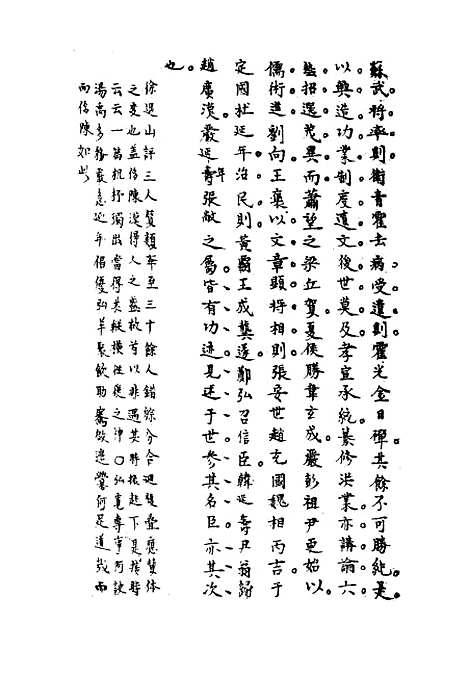 蘇武。將率則衛青霍去病。受遺則霍光金日磾。其餘不可勝紀。是
以興造功業。制度遺文。後世莫及。孝宣承統。纂修洪業。亦講論六
藝。招選茂異。而蕭望之梁丘賀夏侯勝韋玄成嚴彭祖尹更始以
儒術進。劉向王襃以文章顯。將相則張安世趙充國魏相丙吉于
定國杜延年。治民則黃霸王成龔遂鄭弘召信臣韓延壽尹翁歸
趙廣漢嚴延年張敞之屬。皆有功迹見述于世。參其名臣。亦其次
也。
徐退山評三人質類牽至三十餘人錯綜分合迴變疊應贊体
之變也蓋備陳漢得人之盛故首以非遇其時振起下是
云云一篇機抒獨出當得其縱橫往復之神〇弘寬專事阿諛
湯禹多務嚴急延年倡優弘羊聚歛助
而備陳如此